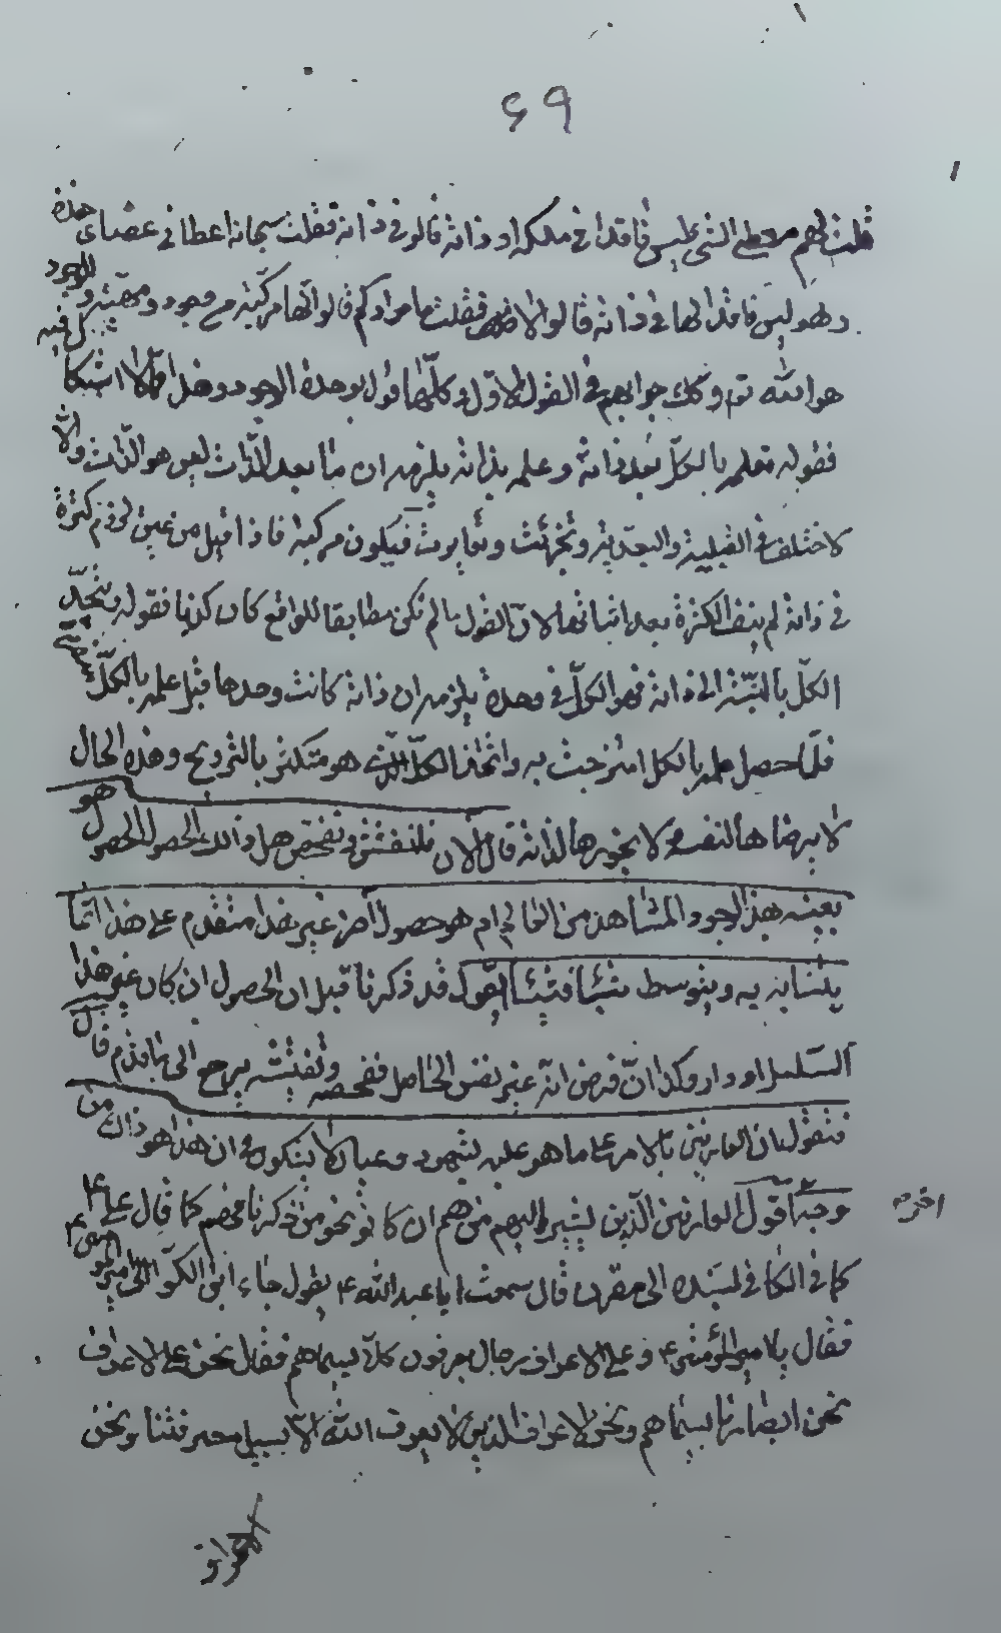 ٤٩
قلت لهم معطي الشيء ليس فاقدا في ملكه او ذاته قالو في ذاته فقلت سبحانه اعطاني عصاى هذه
وهو ليس فاقدا لها في ذاته قالوا لا فقلت ما مرادكم قالوا انها مركبة من وجود ومهيته والوجود
هو الله تع وكك جوابهم في القول الاول وكلها قول بوحدة الوجود وهذا
فقوله تعلمه بالكل بعد ذاته وعلمه بذاته يلزمه ان ما بعد الذات ليس هو الذات والا
لاختلف في القبلية والبعدية وتجزئت وتغايرت فيكون مركبة فاذا قيل من غير لزوم كثرة
في ذاته لم ينف الكثرة بعد اثباتها لان القول ما لم تكن مطابقا للواقع كان كذبا فقوله يتحد
الكل بالنسبة الى ذاته فهو الكل في وحدة يلزمه ان ذاته كانت وحدها قبل علمه بالكل
فلما حصل علمه بالكل امتزجت به واتحاد الكل الذي هو متكثر بالترويج وهذه الحال
لا يرضاها لنفسه ولا يجوزها لذاته قال الان فلنفتش وتفحص هل ذالك الحصول هو
بعينه هذا الوجود المشاهد من العالم ام هو حصول اخر غير هذا متقدم على هذا انما
يلنسانه به ويتوسط شيئا فشيئا اقول قد ذكرنا قبل ان الحصول ان كان غير هذا
تسلسل او دار وكذا ان فرض انه غير نفس الحاصل ففحصه وتفتيشه يرجع الى ما يلزم قال
فنقول ان العارفين بالامر على ما هو عليه بشهود وعيان لا ينكرون ان هذا هو ذاك من
وجه اقول العارفين الذين يشير اليهم من هم ان كانو نحو من ذكرنا فحصهم كما قال علي ع
اخر
كما في الكافي بسنده الى مقرن قال سمعت ابا عبد الله ع يقول جاء ابن الكوا الى امير المؤمنين ع
فقال يا امير المؤمنين ع وعلى الاعراف رجال يعرفون كلا بسيماهم فقال نحن على الاعراف
نحن انصارنا بسيماهم ونحن الاعراف الذين لا يعرف الله الا بسبيل معرفتنا ونحن